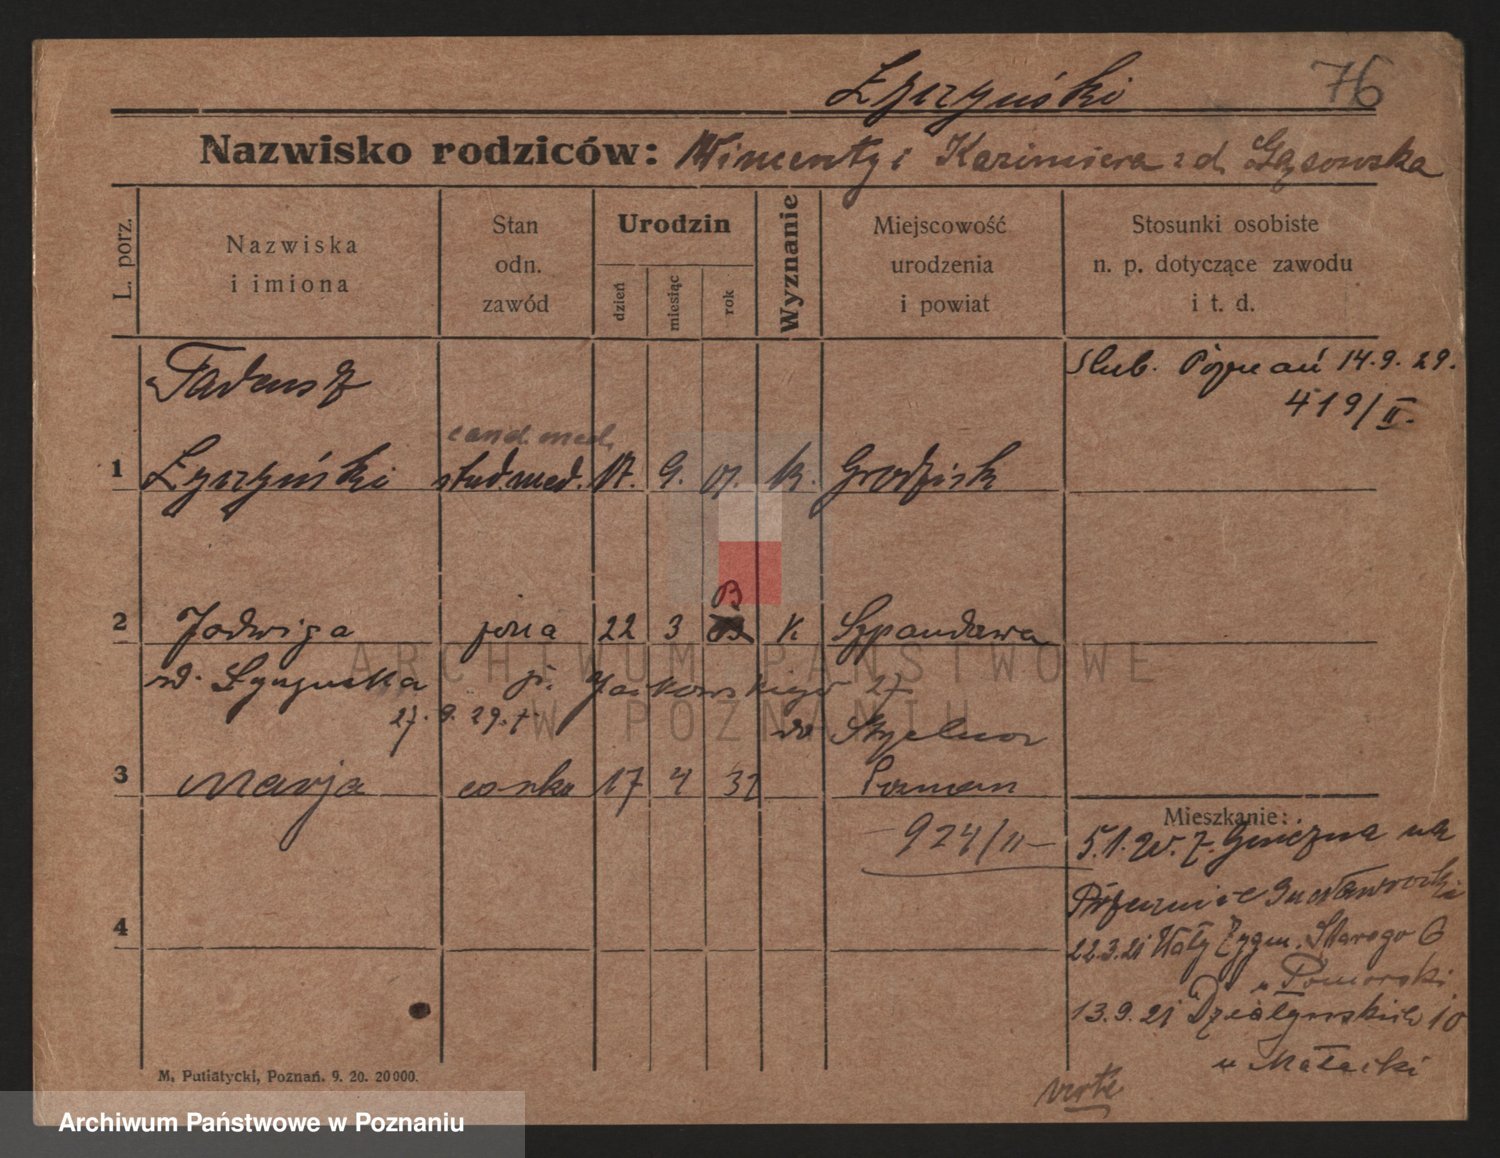 Łyczyński 76
Nazwisko rodziców: Wincenty i Kazimiera z d. Gąsowska
L. porz.
Nazwiska i imiona
Stan odn. zawód
Urodzin
dzień
miesiąc
rok
Wyznanie
Miejscowość urodzenia i powiat
Stosunki osobiste n. p. dotyczące zawodu i t. d.
Tadeusz
Slub. Poznań 14.9.29.
419/II.
cand. med.
1 Łyczyński stud. med. 17. 9. 01. K. Grodzisk
B
2 Jadwiga żona 22 3 K. Szpandawa
27.9.29.
3 Marja córka 17 4 32 Poznan
924/II
Mieszkanie:
5.1.20.
22.3.21 Wały Zygm. Starego 6
u Pomorski
4
13.9.21 Działyńskich 10
u Małacki
verte
M. Putiatycki, Poznań. 9. 20. 20 000.
ARCHIWUM PAŃSTWOWE
W POZNANIU
Archiwum Państwowe w Poznaniu